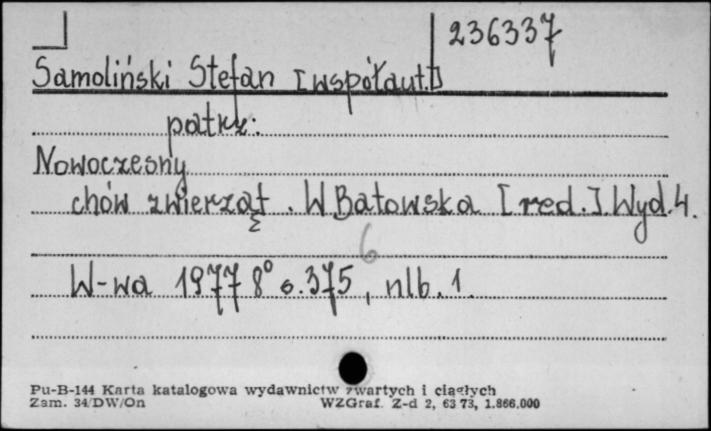 236337
Samoliński Stefan [współaut.]
patrz:
Nowoczesny
chów zwierząt. W Batowska [red.]. Wyd. 4.
6
W-wa 1977 8° s. 375, nlb. 1.
Pu-B-144 Karta katalogowa wydawnictw zwartych i ciągłych
Zam. 34/DW/On WZGraf. Z-d 2, 63 73, 1.866.000